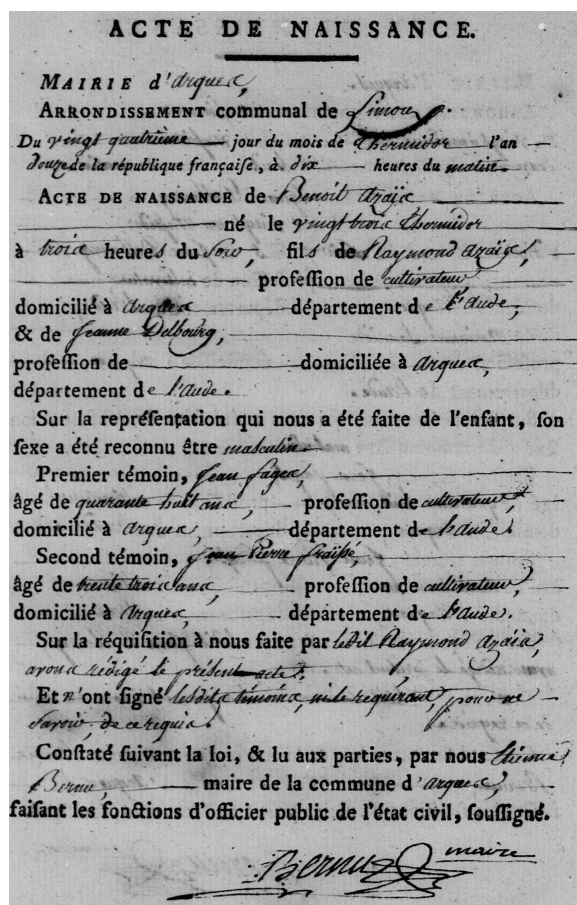 ACTE DE NAISSANCE.
MAIRIE d'arques,
ARRONDISSEMENT communal de Limoux.
Du vingt quatrième jour du mois de thermidor l'an
douze de la république françaiſe, à dix heures du matin
ACTE DE NAISSANCE de Benoit azaïs
né le vingt trois thermidor
à trois heures du soir, fils de Raymond azaïs,
profeſſion de cultivateur
domicilié à arques département de l'aude,
& de Jeanne Delbourg,
profeſſion de domiciliée à arques,
département de l'aude.
Sur la repréſentation qui nous a été faite de l'enfant, ſon
ſexe a été reconnu être masculin.
Premier témoin, jean sages,
âgé de quarante huit ans, profeſſion de cultivateur,
domicilié à arques, département de l'aude.
Second témoin, jean Pierre fraissé,
âgé de trente trois ans, profeſſion de cultivateur,
domicilié à arques, département de l'aude.
Sur la réquiſition à nous faite par ledit Raymond azaïs,
avons rédigé le présent acte,
Et n'ont ſigné lesdits témoins, ni le requérant, pour ne
savoir, de ce requis.
Conſtaté suivant la loi, & lu aux parties, par nous
Bernu, maire de la commune d'arques,
faiſant les fonctions d'officier public de l'état civil, ſouſſigné.
Bernu maire